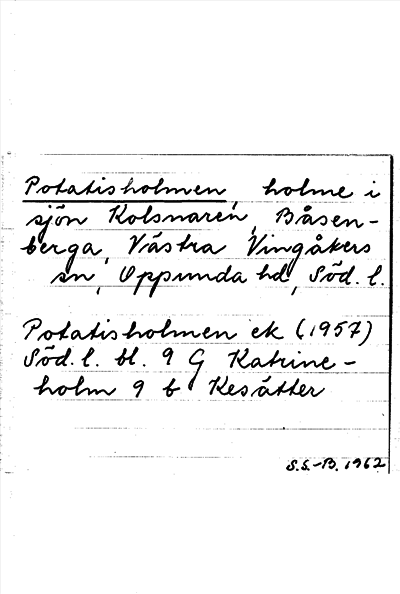 Potatisholmen, holme i
sjön Kolsnaren, Båsen-
berga, Västra Vingåkers
sn, Oppunda hd, Söd. l.
Potatisholmen ek (1957)
Söd. l. bl. 9 G Katrine-
holm 9 b Kesätter
S.S.-B. 1962